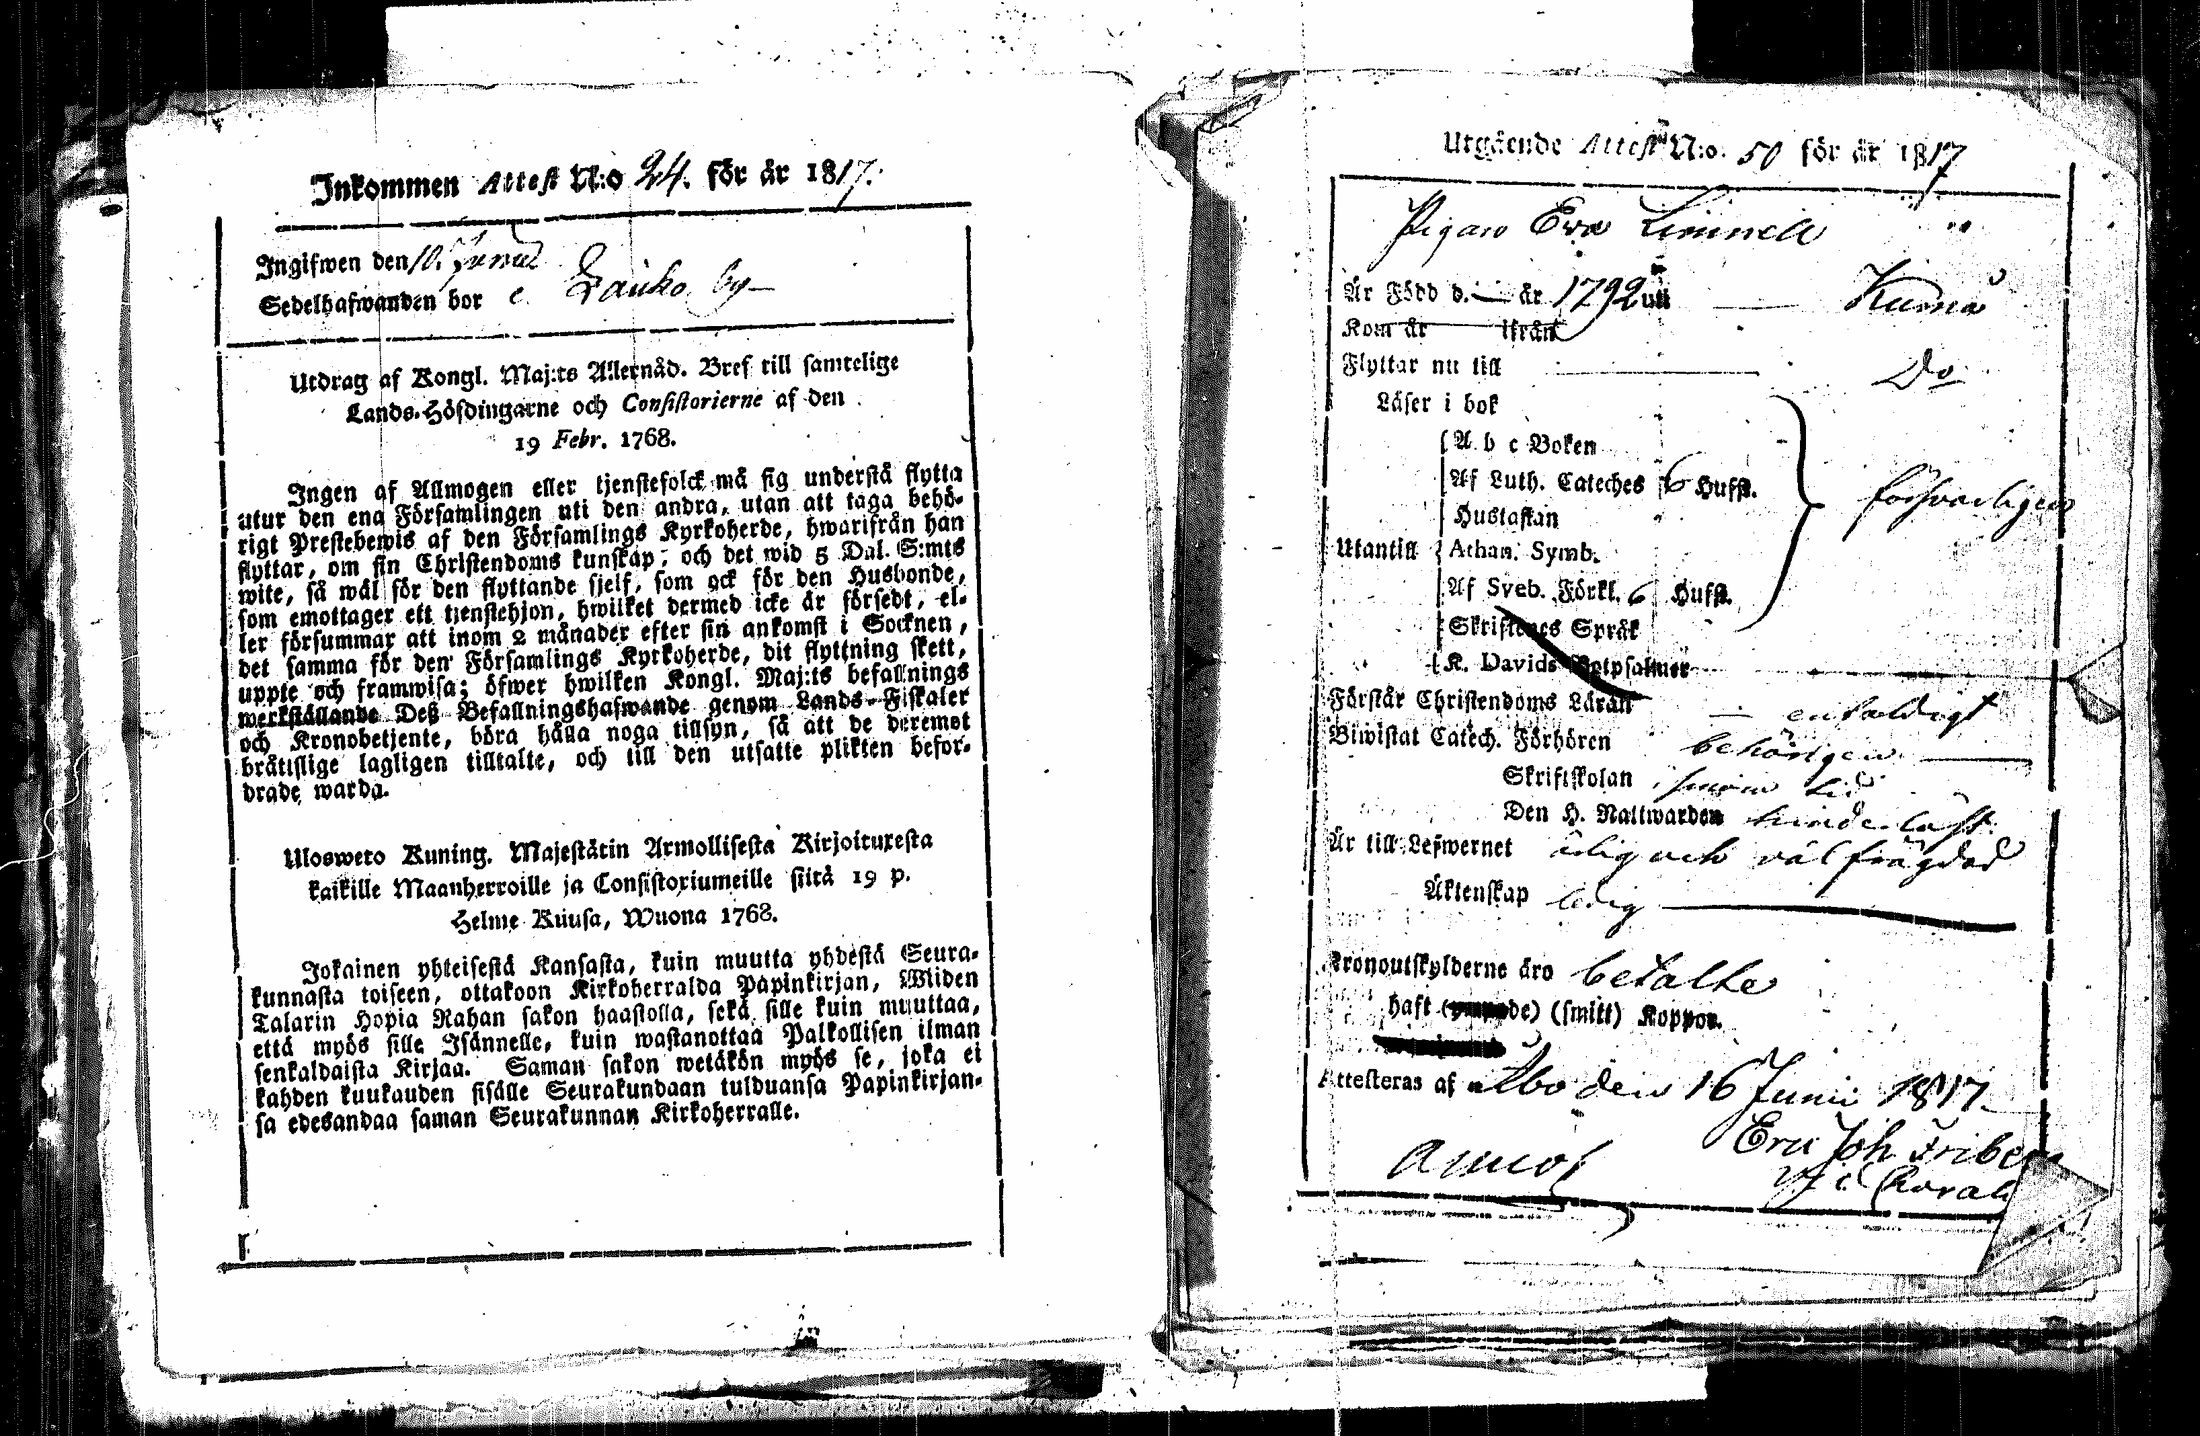 Inkommen Attest N:o 24. för år 1817.
Ingifwen den 10.
Sedelhafwanden bor by
Utdrag af Kongl. Maj:ts Allernåd. Bref till samtelige
Lands-Höfdingarne och Consistorierne af den
19 Febr. 1768.
Ingen af Allmogen eller tjenstefolck må sig understå flytta
utur den ena Församlingen uti den andra, utan att taga behö-
rigt Prestebewis af den Församlings Kyrkoherde, hwarifrån han
flyttar, om sin Christendoms kunskap, och det wid 5 Dal. S:mts
wite, så wäl för den flyttande sjelf, som ock för den Husbonde,
som emottager ett tjenstehjon, hwilket dermed icke är försedt, el-
ler försummar att inom 2 månader efter sin ankomst i Socknen,
det samma för den Församlings Kyrkoherde, dit flyttning skett,
uppte och framwisa; öfwer hwilken Kongl. Maj:ts befallnings
werkställande Deß Befallningshafwande genom Lands-Fiskaler
och Kronobetjente, böra hålla noga tillsyn, så att de deremot
bråtislige lagligen tilltalte, och till den utsatte plikten befor-
drade warda.
Ulosweto Kuning. Majestätin Armollisesta Kirjoituxesta
kaikille Maanherroille ja Consistoriumeille siitä 19 p.
Helme Kuusa, Wuona 1768.
Jokainen yhteisestä Kansasta, kuin muutta yhdestä Seura-
kunnasta toiseen, ottakoon Kirkoherralda Papinkirjan, Wiiden
Talarin Hopia Rahan sakon haastolla, sekä sille kuin muuttaa,
että myös sille Isännelle, kuin wastanottaa Palkollisen ilman
senkaldaista Kirjaa. Saman sakon wetäkön myös se, joka ei
kahden kuukauden sisälle Seurakundaan tulduansa Papinkirjan-
sa edesandaa saman Seurakunnan Kirkoherralle.
Utgående Attest N:o. 50 för år 1817
Pigan Eva Limnell
Är Född d. — år 1792 uti — Kumo
Kom år ifrån
Flyttar nu till Do
Läser i bok
A b c Boken
Af Luth. Cateches 6 Hufst. försvarligen
Hustaflan
Utantill Athan. Symb.
Af Sveb. Förkl. 6 Hufst.
Skriftenes Språk
K. Davids Botpsalmer
Förstår Christendoms Läran — enfaldigt
Biwistat Catech. Förhören behörigen
Skriftskolan i sinom tid
Den H. Nattwarden
Är till Lefwernet ärlig och väl frägdad
Äktenskap ledig
Kronoutskylderne äro betalte
haft (smitt) Koppor.
Attesteras af Åbo den 16 Junii 1817.
Joh Friberg